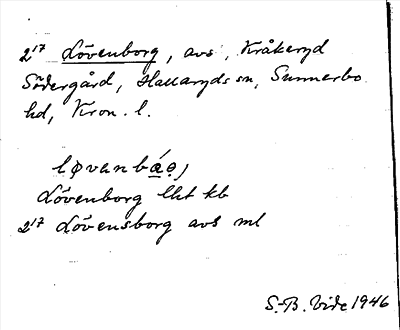 2¹⁷ Lövenborg, avs, Kråkeryd
Södergård, Hallaryds sn, Sunnerbo
hd, Kron. l.
løvanbǽɵ̣)
Lövenborg lht kb
2¹⁷ Lövensborg avs ml
S.-B. Vide 1946